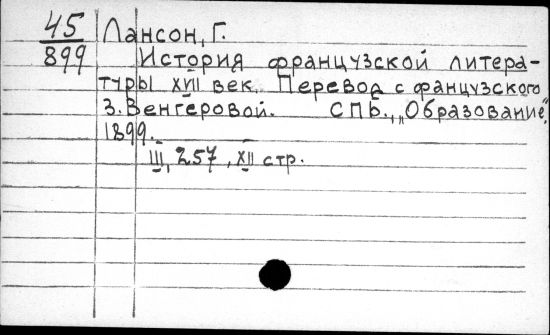 45
899
Лансон, Г.
История французской литера-
туры XVII век. Перевод с французского
З. Венгеровой. СПБ., „Образование",
1899.
III, 257, XII стр.